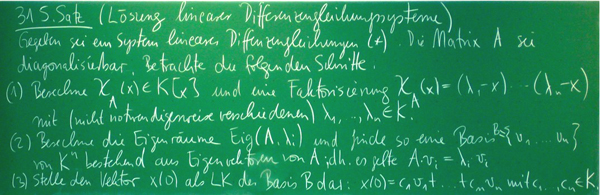 31.5. Satz (Lösung linearer Differenzengleichungssysteme)
Gegeben sei ein System linearer Differenzengleichungen (*). Die Matrix A sei
diagonalisierbar. Betrachte die folgenden Schritte.
(1) Berechne χ_A(x) ∈ K[x] und eine Faktorisierung χ_A(x) = (λ₁-x) ··· (λₙ-x)
mit (nicht notwendigerweise verschiedenen) λ₁, .., λₙ ∈ K.
(2) Berechne die Eigenräume Eig(A, λᵢ) und finde so eine Basis B={v₁ ... vₙ}
von Kⁿ bestehend aus Eigenvektoren von A; dh. es gelte A·vᵢ = λᵢ vᵢ
(3) Stelle den Vektor x(0) als LK der Basis B dar: x(0) = c₁v₁+ .. +cₙvₙ mit c₁, .., cₙ ∈ K